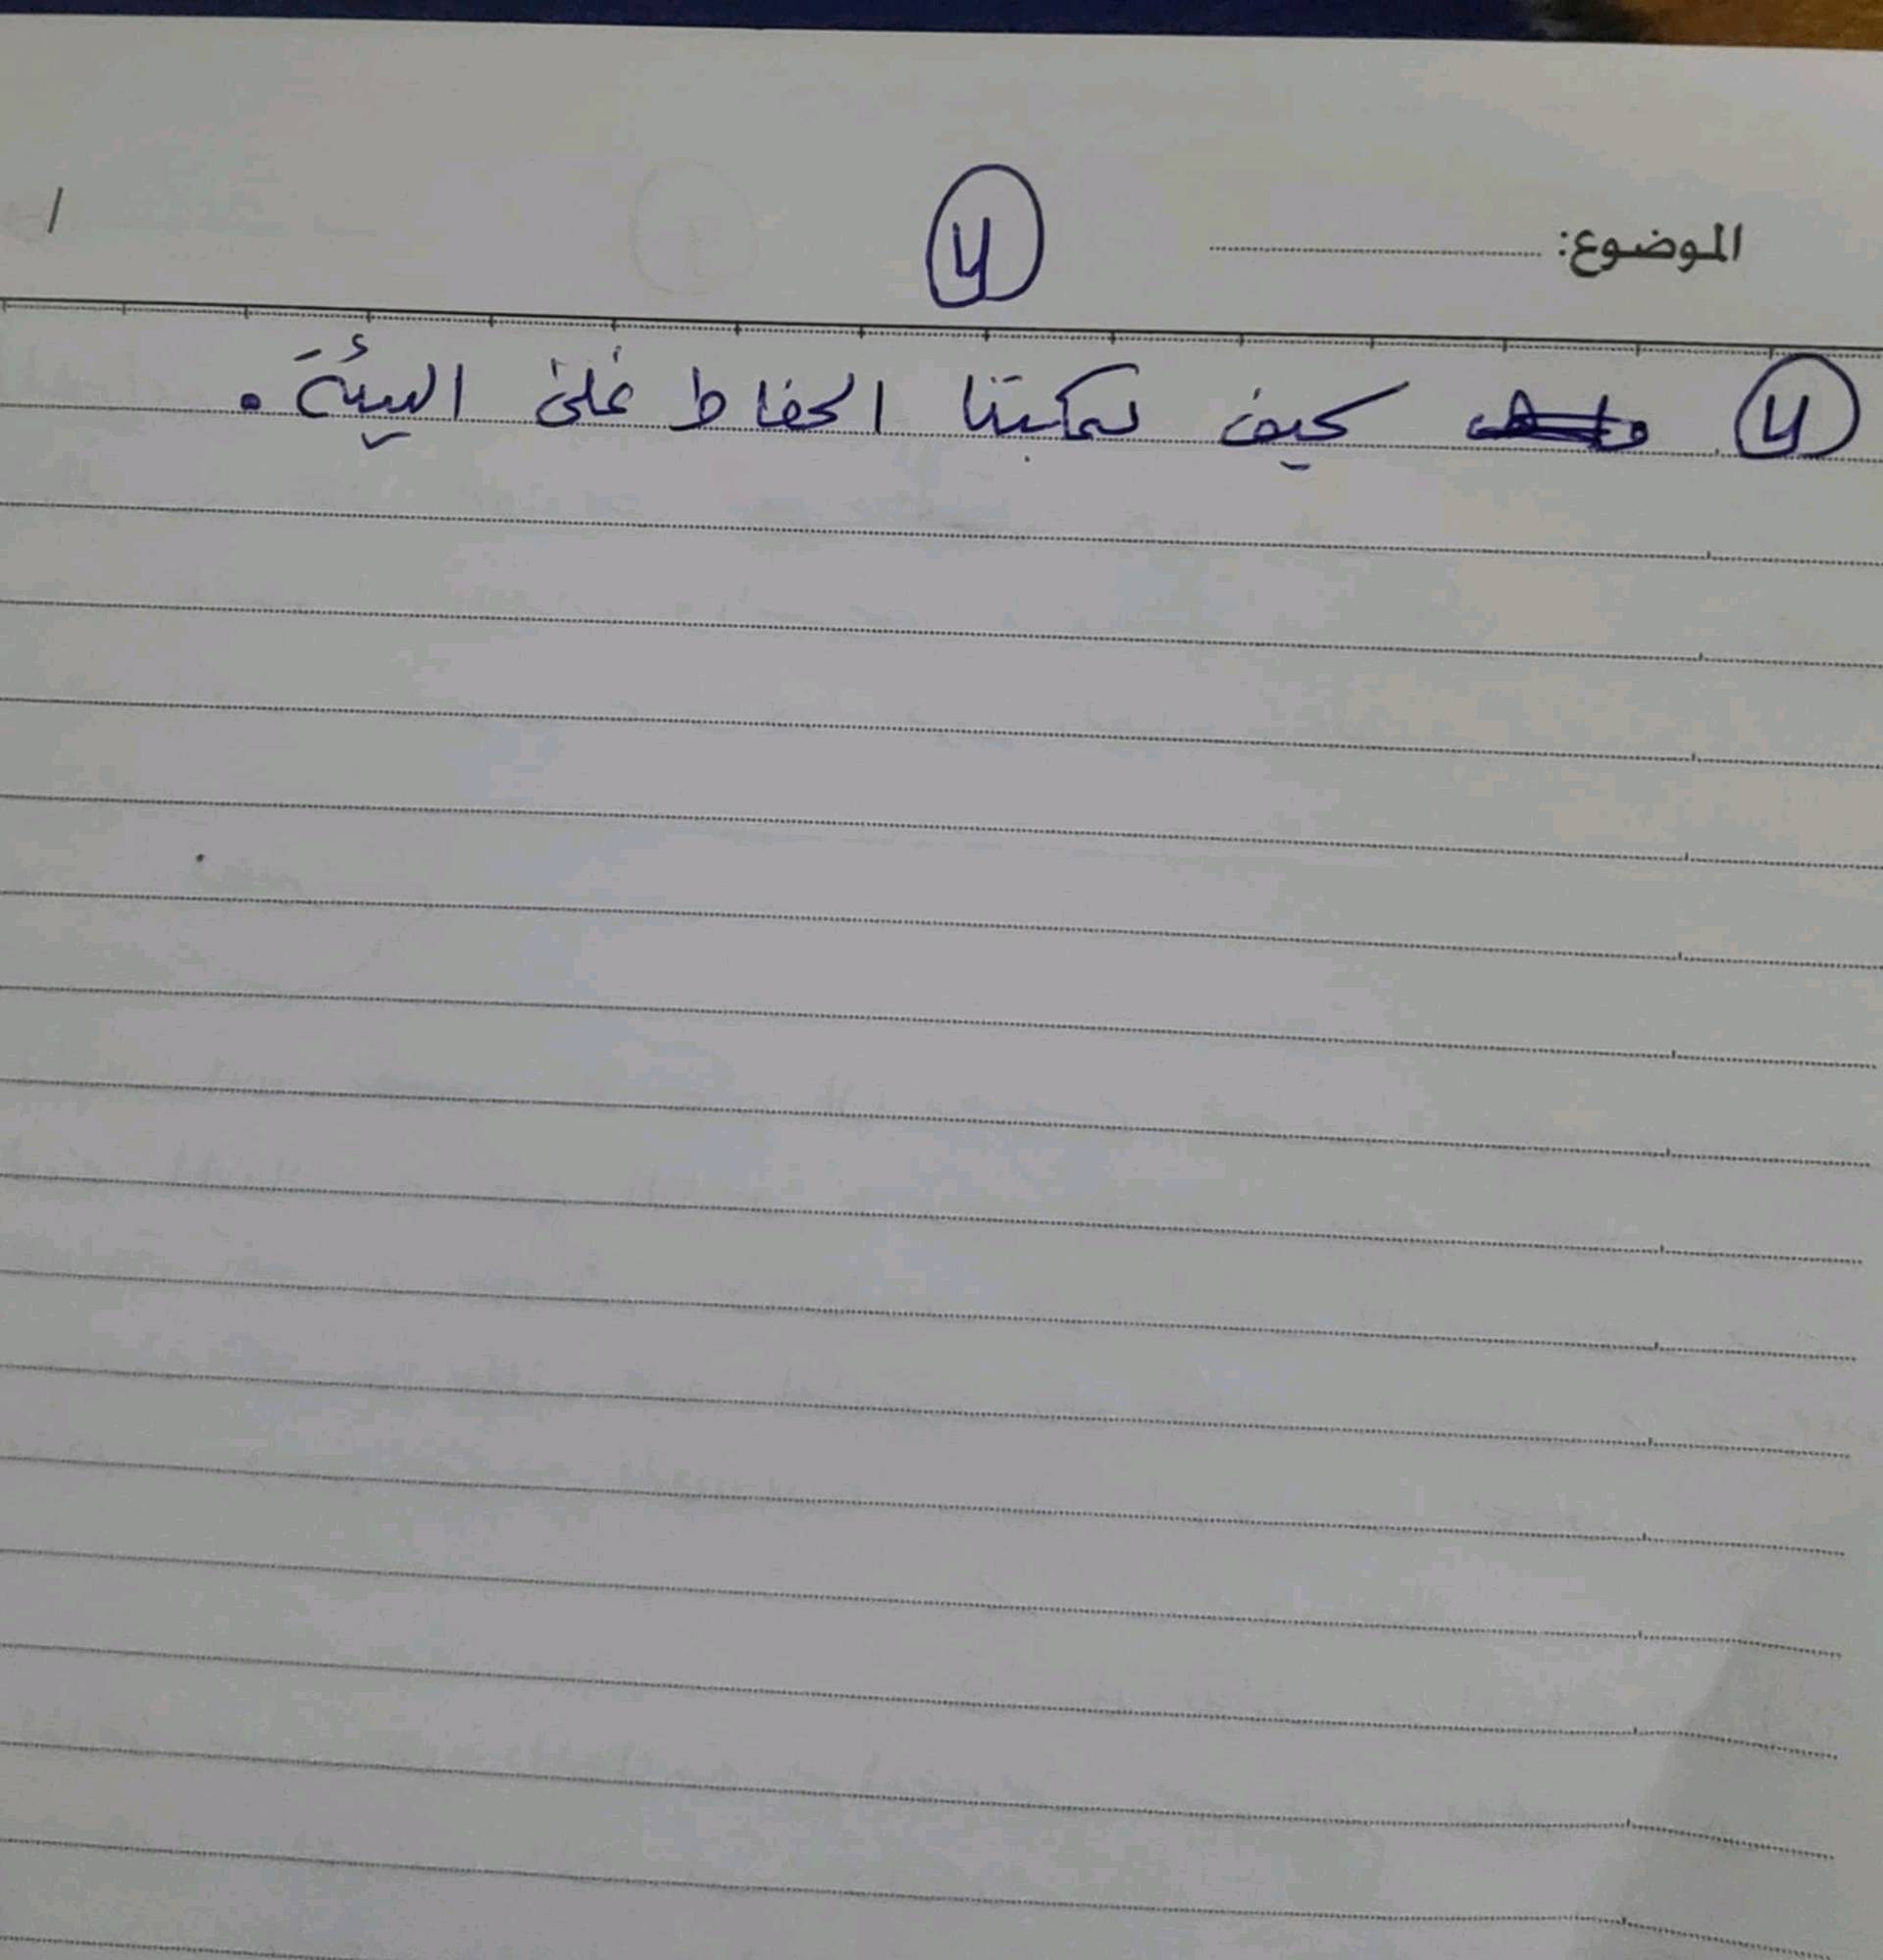 الموضوع:
كيف يمكننا الحفاظ على البيئة.